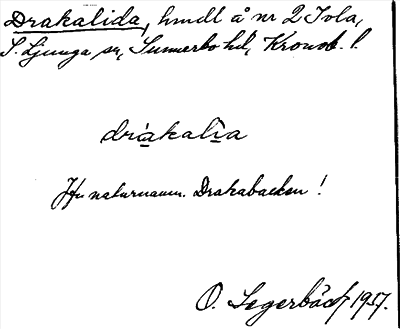 Drakalida, hmdl å nr 2 Tvla,
S. Ljunga sn, Sunnerbo hd, Kronob. l.
drákalìa
Jfr naturnamn. Drakabacken!
O. Segerbäck 1957.